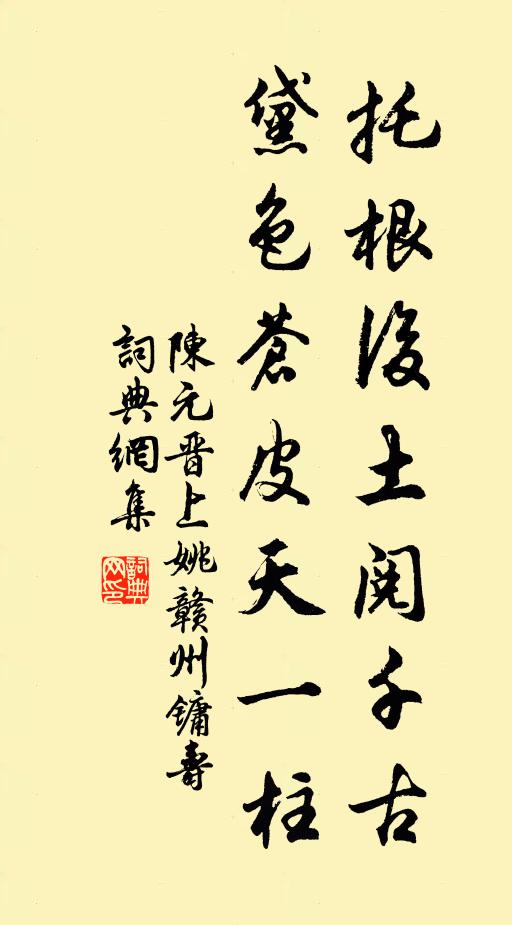 托根後土閱千古
黛色蒼皮天一柱
陳元晋上姚贛州鏞壽
詞典網集
詞典网印